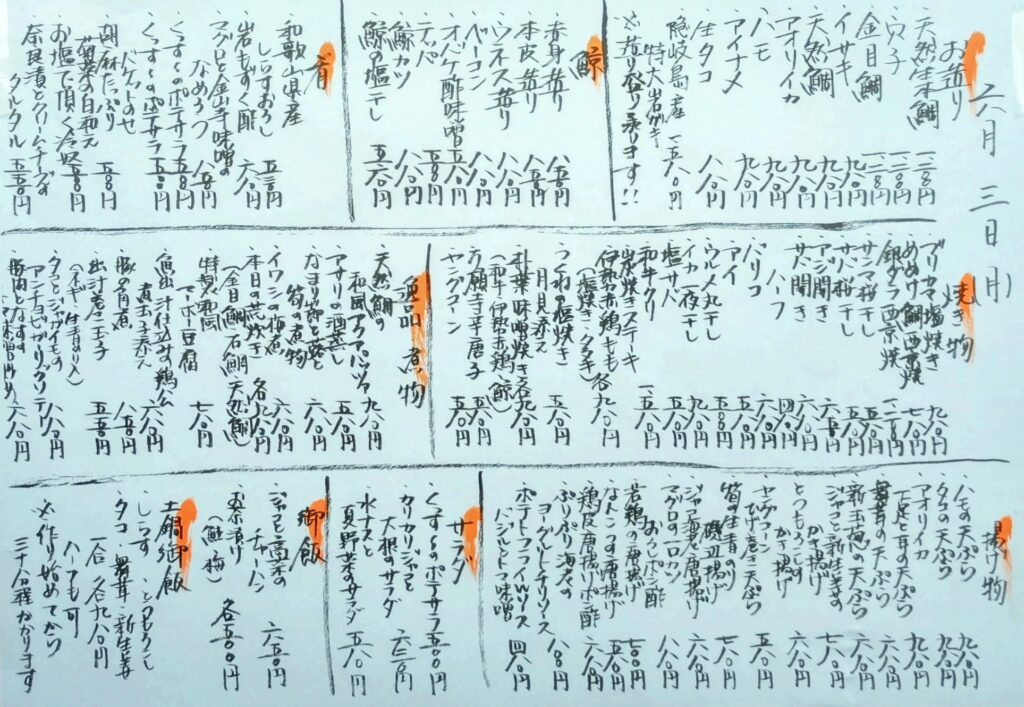 六月三日(月)
お造り
天然生本鮪 一二八〇円
穴子 一二八〇円
金目鯛 一二八〇円
イサキ 九八〇円
天然鯛 九八〇円
アオリイカ 九八〇円
ハモ 九八〇円
アイナメ 九八〇円
生タコ 八八〇円
隠岐島産
特大岩がき 一五八〇円
※お造り盛り承ります!!
鯨
赤身造り 八五〇円
本皮造り 八五〇円
ウネス造り 八八〇円
ベーコン 八八〇円
オバケ酢味噌 五八〇円
テッパ
鯨カツ 八八〇円
鯨の塩干し 五八〇円
肴
和歌山県産
しらすおろし 五五〇円
岩もずく酢 六八〇円
マグロと金山寺味噌の
なめろう 八五〇円
くずし〜のポテサラ 五五〇円
くずし〜のポテサラ
バケットのせ
胡麻たっぷり
菊菜の白和え 五五〇円
お塩で頂く冷奴 五五〇円
奈良漬とクリームチーズの
タルタル 五五〇円
焼き物
ブリカマ塩焼き 九八〇円
めぬけ鯛西京焼 七八〇円
銀ダラ西京焼
サンマ桜干し
サバ桜干し
アジ開き
サバ開き
ハーフ
バリコ
アイ
ウルメ丸干し
イカ一夜干し
塩サバ
和牛タタリ
炭焼きステーキ
伊勢赤鶏もも 各九八〇円
(塩焼き・タタキ)
つくねの塩焼き
月見添え 五八〇円
朴葉味噌焼き 各九八〇円
(和牛・伊勢赤鶏・鯨)
万願寺辛唐子 五八〇円
ヤングコーン 五八〇円
逸品 煮物
天然鯛の
和風アクアパッツァ 九八〇円
アサリの酒蒸し 五八〇円
なまり節と蕗と
筍の煮物 六八〇円
イワシの梅煮 六八〇円
本日の煮焼き 各九八〇円
(金目鯛・石鯛・天然鯛)
特製和風
マーボー豆腐 七八〇円
魚出汁仕込み鶏ハム
温玉子添え 六八〇円
豚の角煮 八八〇円
出汁巻き玉子 五五〇円
(ネギ・生青のり入)
タコとジャガイモの
アンチョビガーリックソテー 八八〇円
豚肉となすの 六八〇円
揚げ物
ハモの天ぷら 九八〇円
タコの天ぷら 九八〇円
アオリイカ
下足と耳の天ぷら 九八〇円
舞茸の天ぷら 六八〇円
新玉葱の天ぷら 六八〇円
ジャコと新生姜の
かき揚げ 七八〇円
とうもろこし
かき揚げ 六八〇円
ヤングコーン
ひげ巻き天ぷら 五八〇円
筍の生青のり
磯辺揚げ 七八〇円
ジャコ海老唐揚げ 六八〇円
マグロの一口カツ
おろしポン酢 八八〇円
若鶏の唐揚げ 七〇〇円
なんこつの唐揚げ 五五〇円
鶏皮唐揚げポン酢
ぷりぷり海老の
ヨーグルトチリソース
ポテトフライwソース
バジルとトマト味噌 四八〇円
サラダ
くずし〜のポテサラ 五五〇円
カリカリジャコと
大根のサラダ 六五〇円
水ナスと
夏野菜のサラダ 五八〇円
御飯
ジャコと高菜の
チャーハン 六五〇円
お茶漬け
(鮭・梅) 各五〇〇円
土鍋御飯
しらす・とうもろこし
タコ・舞茸・新生姜
一合 各九八〇円
ハーフも可
※作り始めてから
三十分程かかります